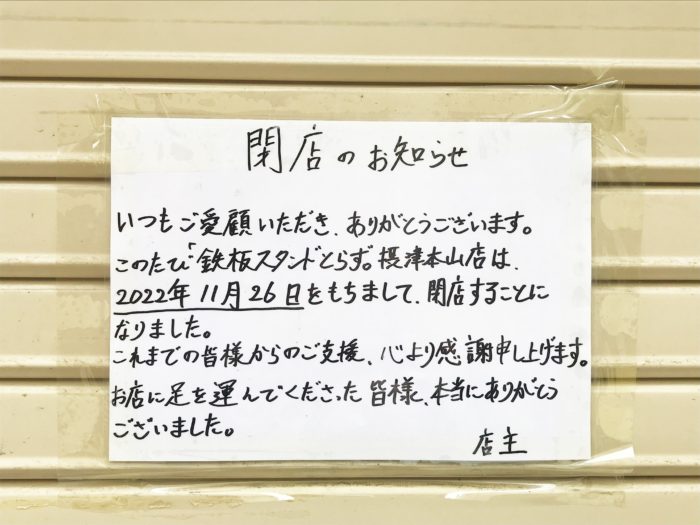 閉店のお知らせ
いつもご愛顧いただき、ありがとうございます。
このたび「鉄板スタンドとらず。摂津本山店は、
2022年11月26日をもちまして、閉店することに
なりました。
これまでの皆様からのご支援、心より感謝申し上げます。
お店に足を運んでくださった皆様、本当にありがとう
ございました。
店主